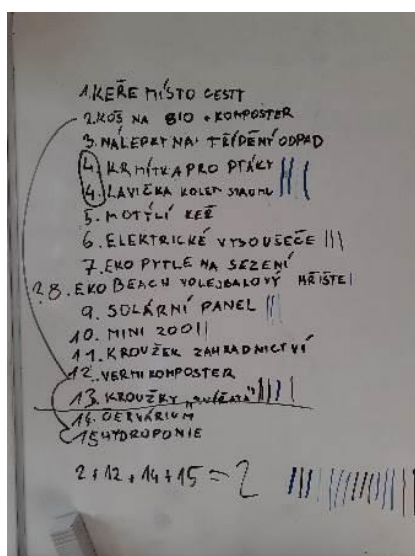 1. KEŘE MÍSTO CESTY
2. KOŠ NA BIO + KOMPOSTER
3. NÁLEPKY NA TŘÍDĚNÝ ODPAD
4. KRMÍTKA PRO PTÁKY
4. LAVIČKA KOLEM STROMU
5. MOTÝLÍ KEŘ
6. ELEKTRICKÉ VYSOUŠEČE |||
7. EKO PYTLE NA SEZENÍ
?8. EKO BEACH VOLEJBALOVÝ HŘIŠTĚ |
9. SOLÁRNÍ PANEL ||
10. MINI ZOO ||
11. KROUŽEK ZAHRADNICTVÍ
12. VERMIKOMPOSTER
13. KROUŽKY
14. ŽERVÁRIUM
15 HYDROPONIE
2 + 12 + 14 + 15 = 2